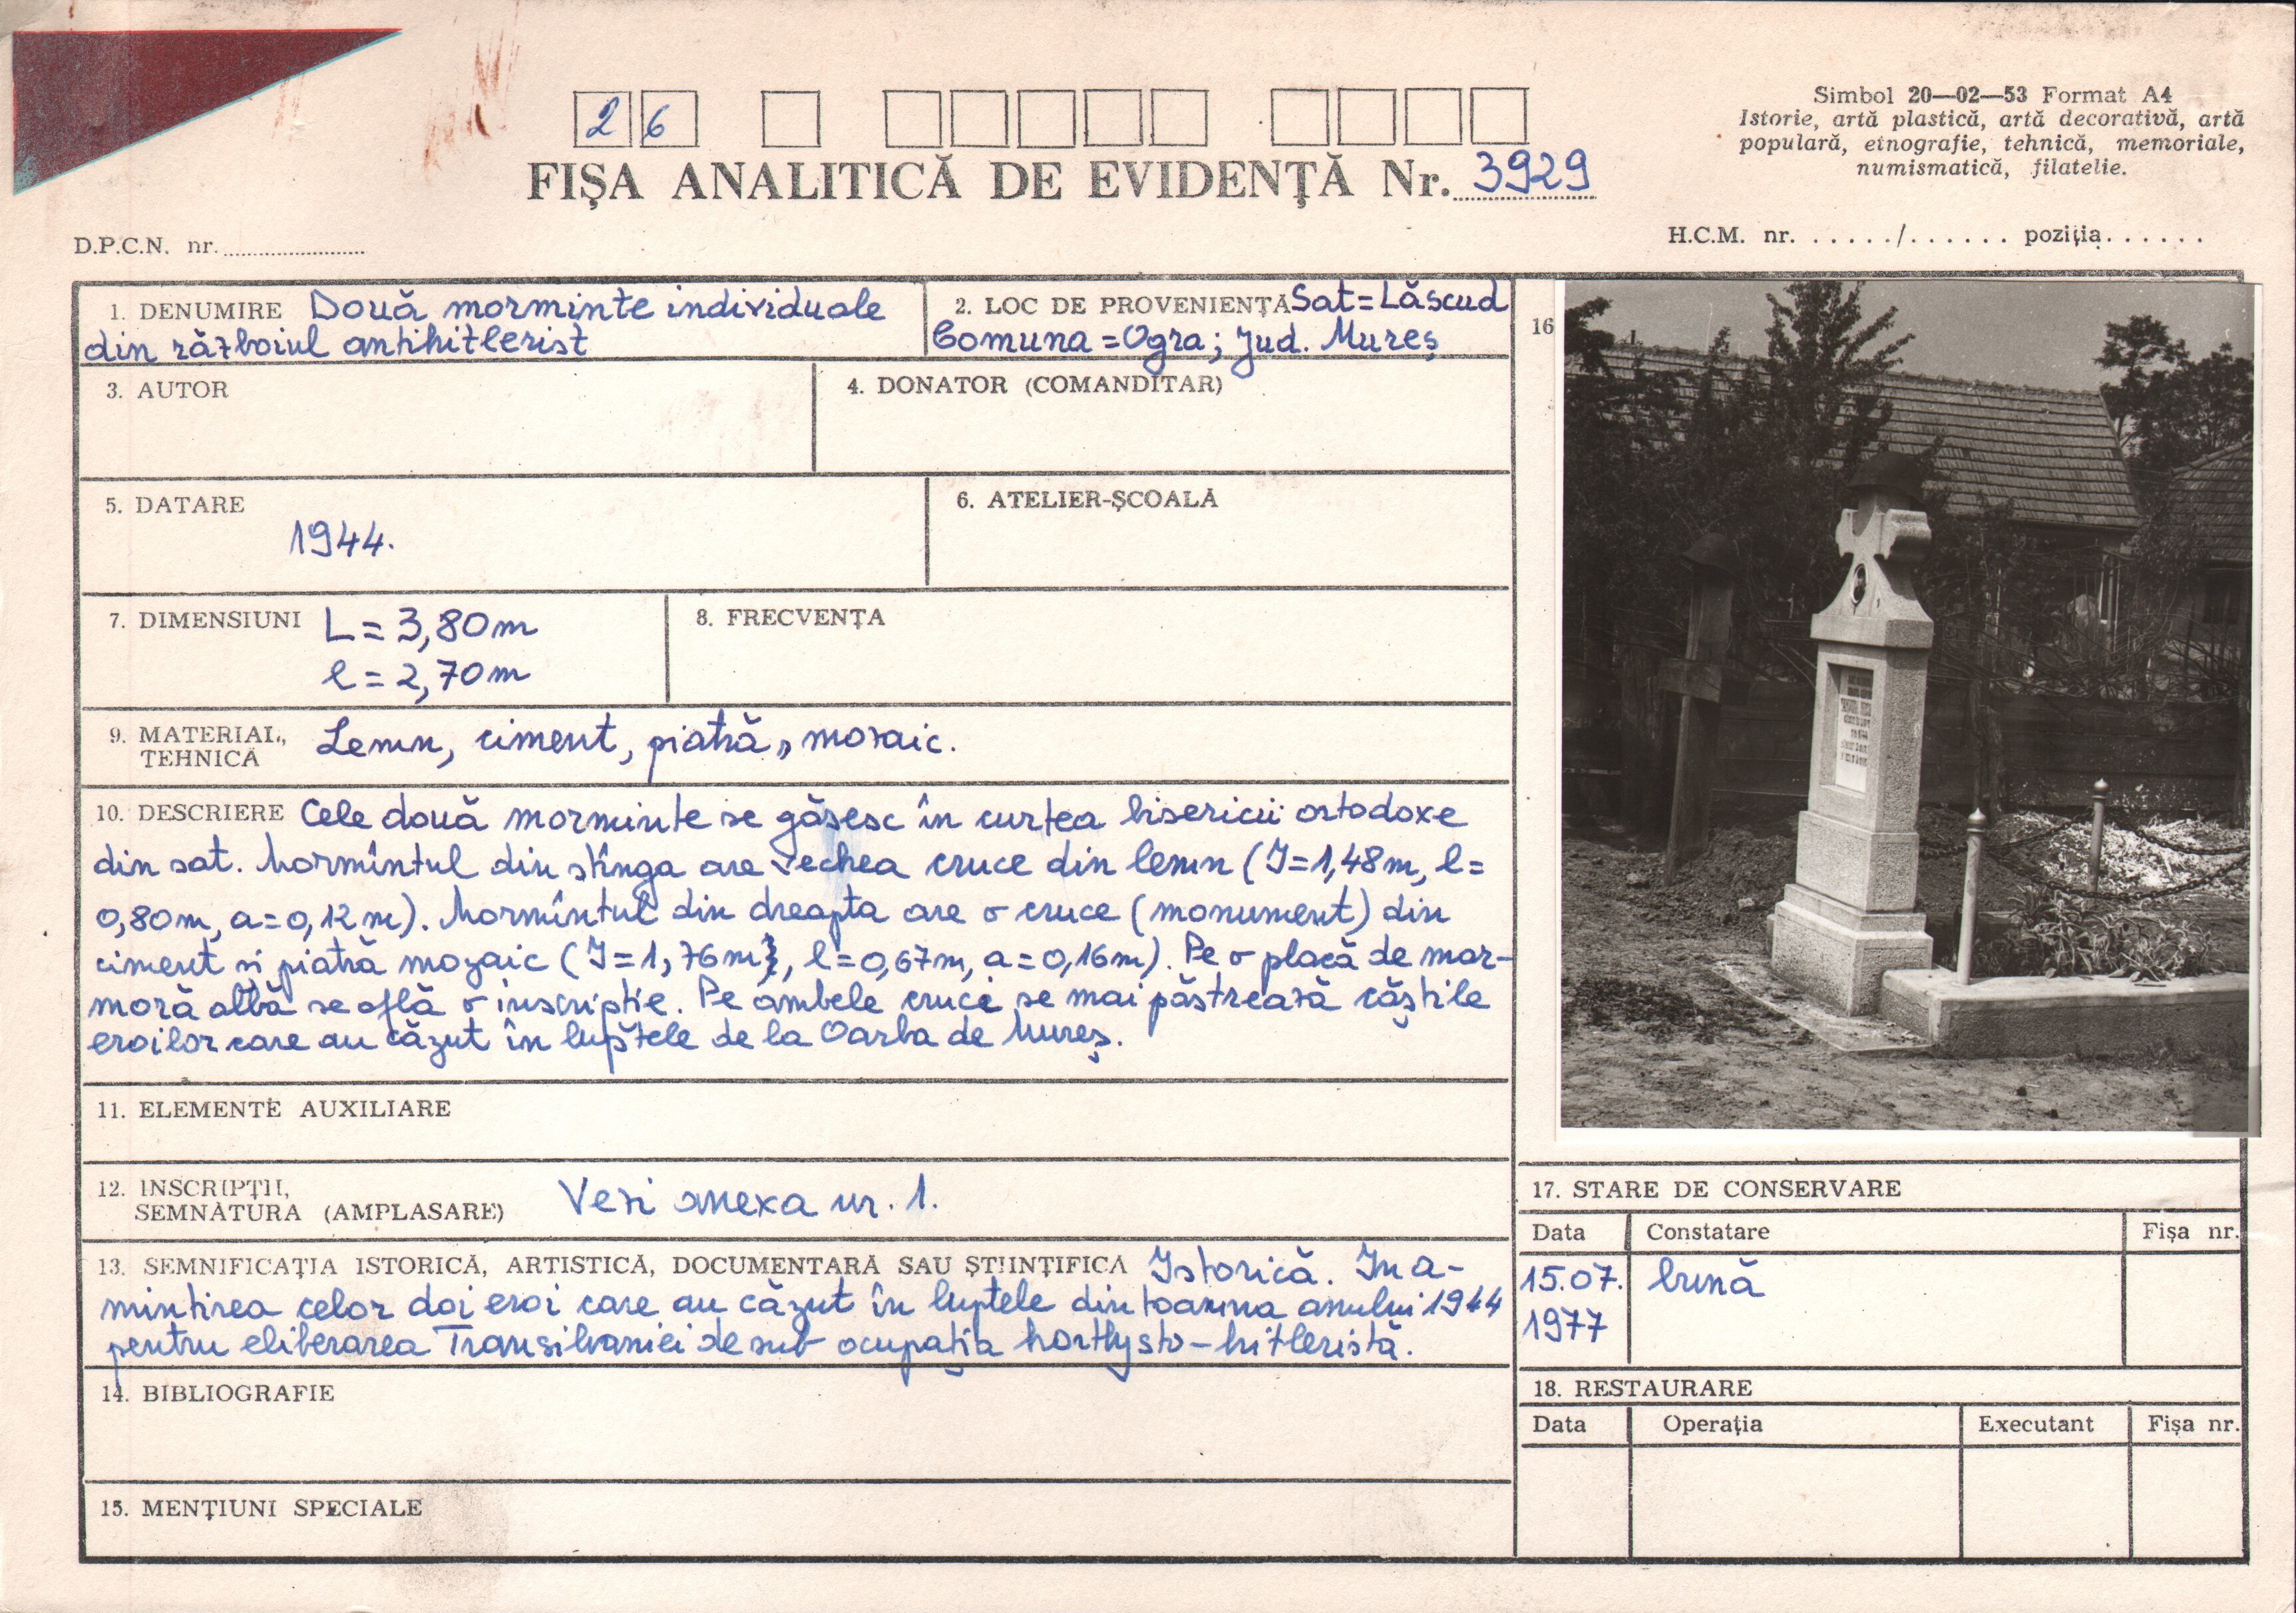 Simbol 20—02—53 Format A4
Istorie, artă plastică, artă decorativă, artă
populară, etnografie, tehnică, memoriale,
numismatică, filatelie.
2 6
FIȘA ANALITICĂ DE EVIDENȚĂ Nr. 3929
D.P.C.N. nr. ....................
H.C.M. nr. ...../...... poziția......
1. DENUMIRE Două morminte individuale
din războiul antihitlerist
2. LOC DE PROVENIENȚĂ Sat=Lăscud
Comuna=Ogra; Jud. Mureș
3. AUTOR
4. DONATOR (COMANDITAR)
5. DATARE
1944.
6. ATELIER-ȘCOALĂ
7. DIMENSIUNI L=3,80m
l=2,70m
8. FRECVENȚA
9. MATERIAL, TEHNICĂ Lemn, ciment, piatră, mozaic.
10. DESCRIERE Cele două morminte se găsesc în curtea bisericii ortodoxe
din sat. Mormîntul din stînga are vechea cruce din lemn (I=1,48m, l=
0,80m, a=0,12m). Mormîntul din dreapta are o cruce (monument) din
ciment și piatră mozaic (I=1,76m, l=0,67m, a=0,16m). Pe o placă de mar-
moră albă se află o inscripție. Pe ambele cruci se mai păstrează căștile
eroilor care au căzut în luptele de la Oarba de Mureș.
11. ELEMENTE AUXILIARE
12. INSCRIPȚII,
SEMNĂTURA (AMPLASARE) Vezi anexa nr. 1.
13. SEMNIFICAȚIA ISTORICĂ, ARTISTICĂ, DOCUMENTARĂ SAU ȘTIINȚIFICĂ Istorică. In a-
mintirea celor doi eroi care au căzut în luptele din toamna anului 1944
pentru eliberarea Transilvaniei de sub ocupația horthysto-hitleristă.
14. BIBLIOGRAFIE
15. MENȚIUNI SPECIALE
16
17. STARE DE CONSERVARE
Data Constatare Fișa nr.
15.07. bună
1977
18. RESTAURARE
Data Operația Executant Fișa nr.